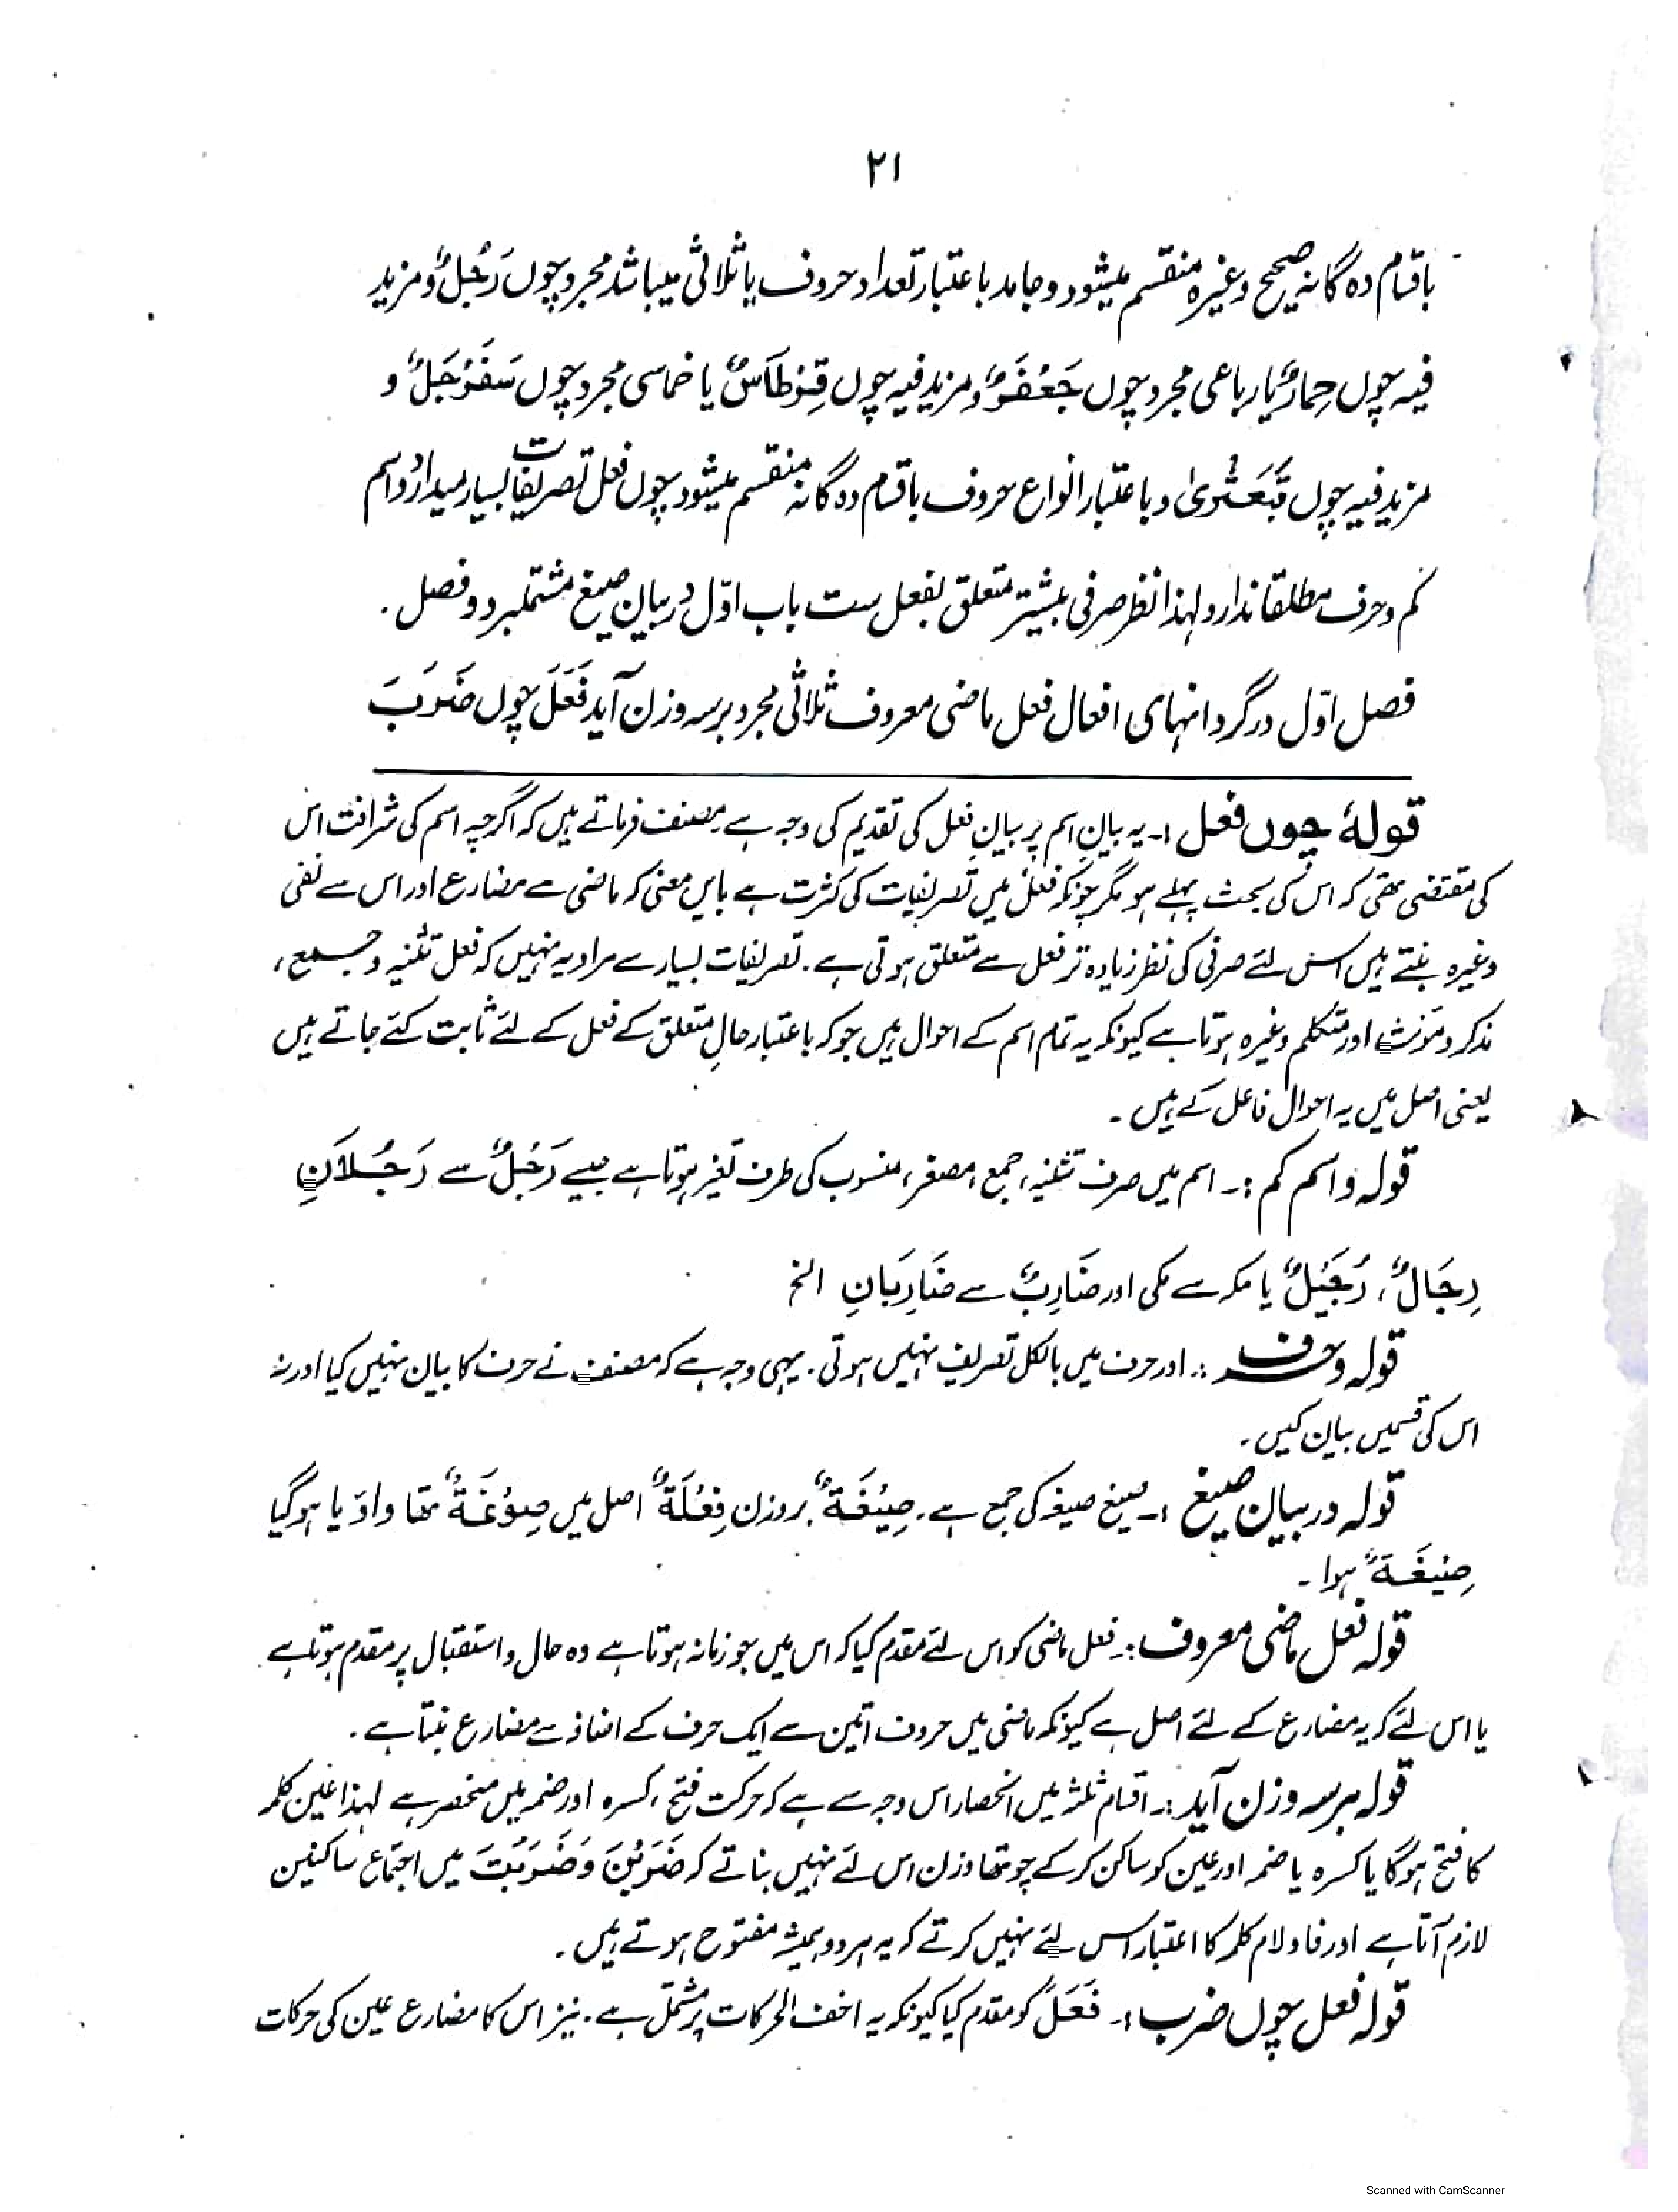 ۲۱
باقسام ده گانه صحیح وغیره منقسم میشود وجامد باعتبار تعداد حروف یا ثلاثی میباشد مجرد چوں رَجُلٌ ومزید
فیه چوں حِمارٌ یا رباعی مجرد چوں جَعْفَرٌ ومزید فیه چوں قِرْطَاسٌ یا خماسی مجرد چوں سَفَرْجَلٌ و
مزید فیه چوں قَبَعْثَریٰ وباعتبار انواع حروف باقسام ده گانه منقسم میشود چوں فعل تصریفات بسیار میدارد واسم
کم وحرف مطلقا ندارد ولہٰذا نظر صرفی بیشتر متعلق بفعل ست باب اوّل در بیان صیغ مشتملبر دو فصل .
فصل اوّل در گردانہای افعال فعل ماضی معروف ثلاثی مجرد بر سه وزن آید فَعَلَ چوں ضَرَبَ
قولہٗ چوں فعل :۔ یہ بیانِ اسم پر بیانِ فعل کی تقدیم کی وجہ ہے مصنف فرماتے ہیں کہ اگرچہ اسم کی شرافت اس
کی مقتضی تھی کہ اس کی بحث پہلے ہو مگر چونکہ فعل میں تصریفات کی کثرت ہے بایں معنی کہ ماضی سے مضارع اور اس سے نفی
وغیرہ بنتے ہیں اس لئے صرفی کی نظر زیادہ تر فعل سے متعلق ہوتی ہے . تصریفات بسیار سے مراد یہ نہیں کہ فعل تثنیہ وجمع ،
مذکر ومؤنث اور متکلم وغیرہ ہوتا ہے کیونکہ یہ تمام اسم کے احوال ہیں جو کہ باعتبار حالِ متعلق کے فعل کے لئے ثابت کئے جاتے ہیں
یعنی اصل میں یہ احوال فاعل کے ہیں ۔
قولہ واسم کم :۔ اسم میں صرف تثنیہ ، جمع ، مصغر ، منسوب کی طرف تغیر ہوتا ہے جیسے رَجُلٌ سے رَجُلَانِ
رِجَالٌ ، رُجَیْلٌ یا مکہ سے مکی اور ضَارِبٌ سے ضَارِبَانِ الخ
قولہ وحرف :۔ اور حرف میں بالکل تصریف نہیں ہوتی . یہی وجہ ہے کہ مصنف نے حرف کا بیان نہیں کیا اور نہ
اس کی قسمیں بیان کیں ۔
قولہ در بیان صیغ :۔ صیغ صیغہ کی جمع ہے . صِیْغَةٌ بروزن فِعْلَةٌ اصل میں صِوْغَةٌ تھا واؤ یا ہو گیا
صِیْغَةٌ ہوا ۔
قولہ فعل ماضی معروف :۔ فعل ماضی کو اس لئے مقدم کیا کہ اس میں جو زمانہ ہوتا ہے وہ حال و استقبال پر مقدم ہوتا ہے
یا اس لئے کہ یہ مضارع کے لئے اصل ہے کیونکہ ماضی میں حروف اتین سے ایک حرف کے اضافہ سے مضارع بنتا ہے .
قولہ بر سہ وزن آید :۔ اقسام ثلثہ میں انحصار اس وجہ سے ہے کہ حرکت فتح ، کسرہ اور ضمہ میں منحصر ہے لہٰذا عین کلمہ
کا فتح ہوگا یا کسرہ یا ضمہ اور عین کو ساکن کرکے چوتھا وزن اس لئے نہیں بناتے کہ ضَرَبْنَ وَ ضَرَبْتَ میں اجتماع ساکنین
لازم آتا ہے اور فا و لام کلمہ کا اعتبار اس لئے نہیں کرتے کہ یہ ہر دو ہمیشہ مفتوح ہوتے ہیں ۔
قولہ فعل چوں ضرب :۔ فَعَلَ کو مقدم کیا کیونکہ یہ اخف الحرکات پر مشتمل ہے . نیز اس کا مضارع عین کی حرکات
Scanned with CamScanner